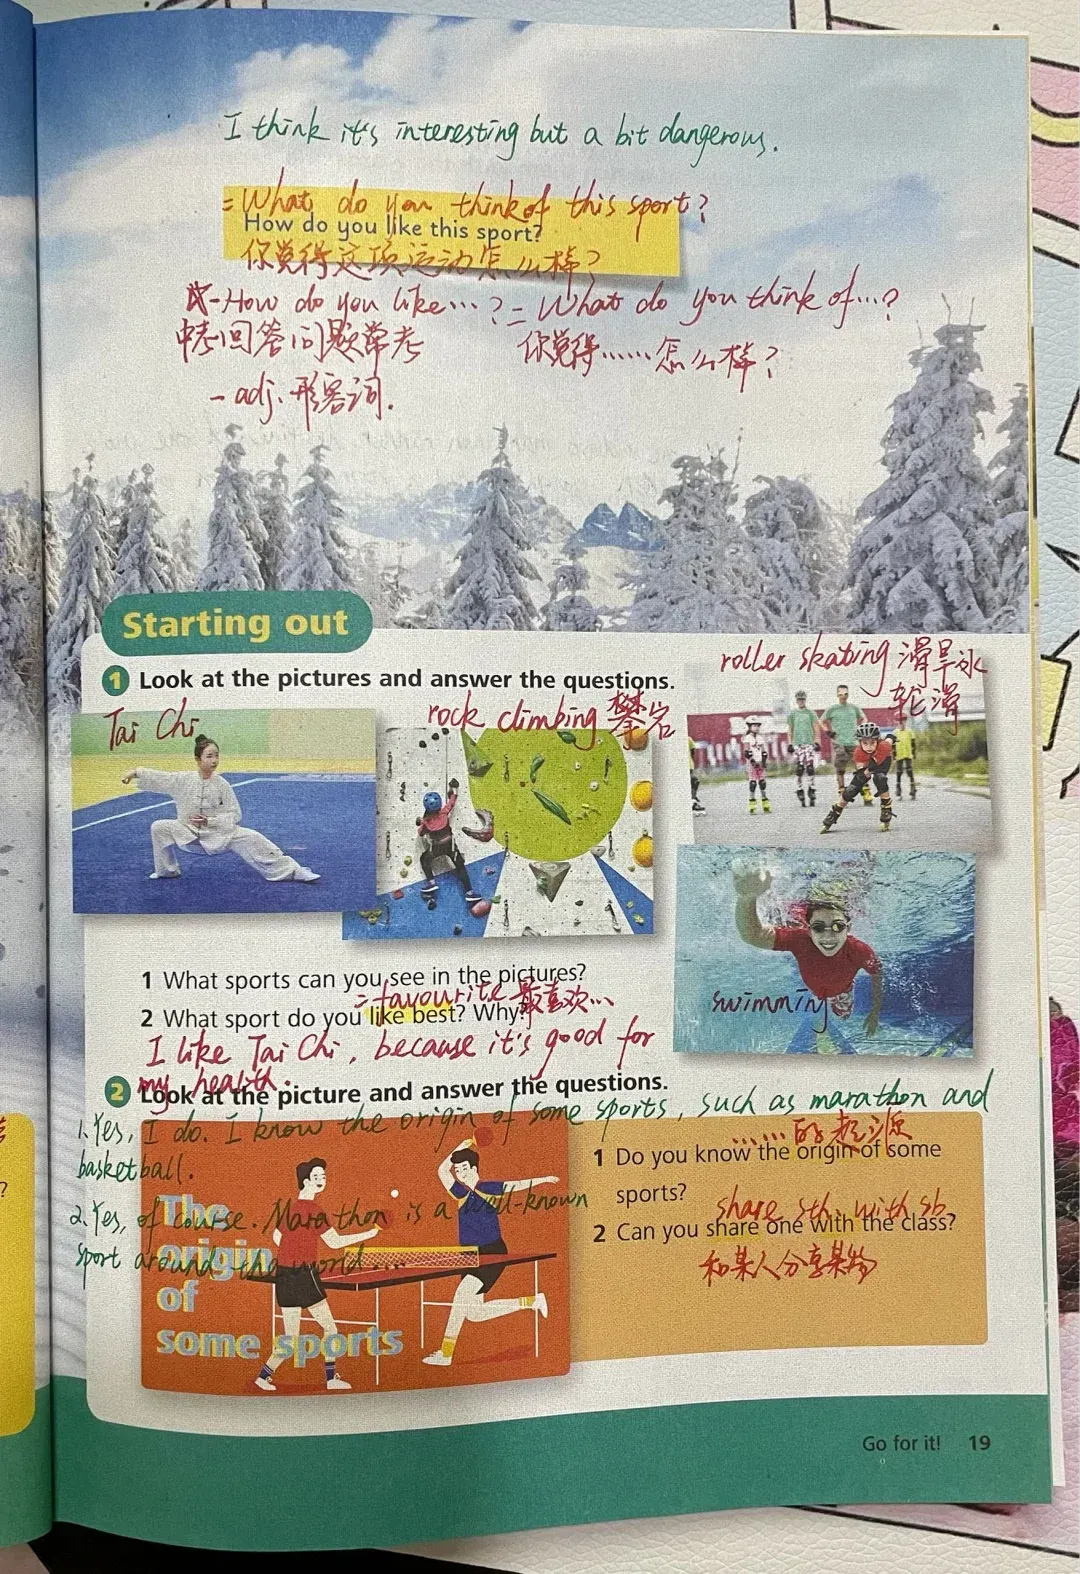 I think it's interesting but a bit dangerous.
= What do you think of this sport?
How do you like this sport?
你觉得这项运动怎么样?
-How do you like…? = What do you think of…?
中考回答问题常考
你觉得……怎么样?
- adj. 形容词.
Starting out
roller skating 滑旱冰
轮滑
1 Look at the pictures and answer the questions.
Tai Chi
rock climbing 攀岩
swimming
1 What sports can you see in the pictures?
= favourite 最喜欢…
2 What sport do you like best? Why?
I like Tai Chi, because it's good for
my health.
2 Look at the picture and answer the questions.
1. Yes, I do. I know the origin of some sports, such as marathon and
basketball.
……的起源
1 Do you know the origin of some
sports?
share sth. with sb
2 Can you share one with the class?
和某人分享某物
2. Yes, of course. Marathon is a well-known
sport around the world...
The
origin
of
some sports
Go for it! 19